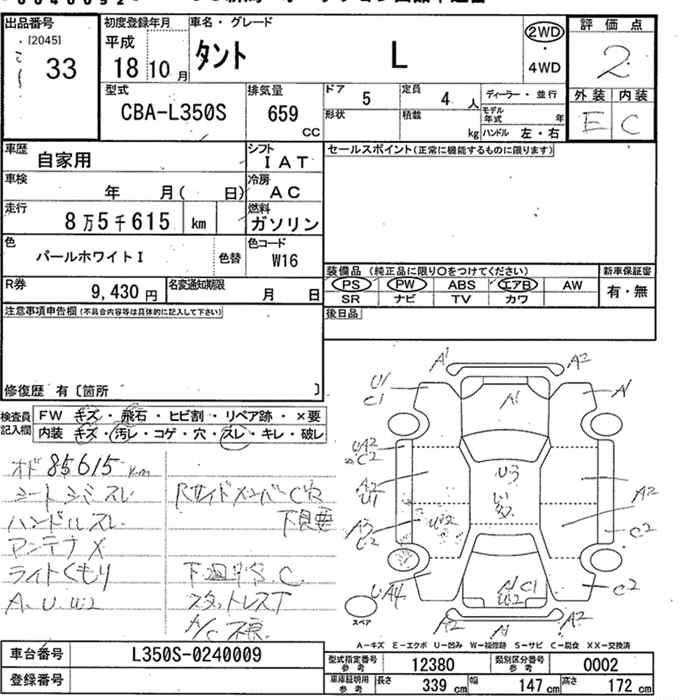 出品番号
[2045]
33
初度登録年月
平成
18 10 月
車名・グレード
タント L
2WD
・
4WD
評価点
2
外装 内装
E C
型式
CBA-L350S
排気量
659
CC
ドア 5
定員 4 人
形状
積載 kg
ディーラー・並行
モデル年式 年
ハンドル 左・右
車歴 自家用
シフト
IAT
車検 年 月( 日)
冷房
AC
走行
8万5千615 km
燃料
ガソリン
色
パールホワイトI
色替
色コード
W16
R券 9,430 円
名変通知期限 月 日
セールスポイント(正常に機能するものに限ります)
装備品 (純正品に限り○をつけてください)
PS PW ABS エアB AW
SR ナビ TV カワ
新車保証書
有・無
後日品
注意事項申告欄(不具合内容等は具体的に記入して下さい)
修復歴 有〔箇所 〕
検査員記入欄
FW キズ・飛石・ヒビ割・リペア跡・×要
内装 キズ・汚レ・コゲ・穴・スレ・キレ・破レ
オド 85615 km
シートシミスレ
ハンドルスレ
アンテナX
ライトくもり
A.U.W2
下良要
スタットレスT
A'
A2
U'
C1
A'
A'
U2
C2
A2
U1
A3
U3
A2
C2
C2
UA4
C1
A2
A'
A2
スペア
A-キズ E-エクボ U-凹み W-補修跡 S-サビ C-腐食 XX-交換済
車台番号 L350S-0240009
登録番号
型式指定番号 参考 12380
類別区分番号 参考 0002
車庫証明用 参考 長さ 339 cm 幅 147 cm 高さ 172 cm